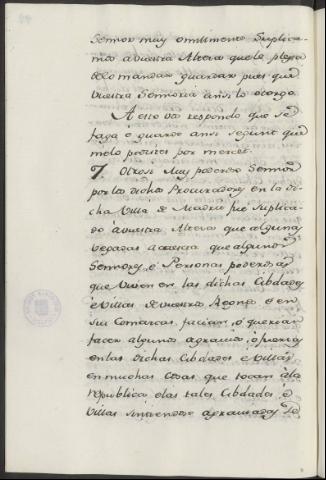 Sennor muy omillmente Suplica-
mos a vuestra Alteza quele plega
delo mandar guardar pues que
vuestra Sennoria ansi lo otorgo.
A esto vos respondo que se
faga e guarde ansi segunt que
melo pedistes por merced.
7. Otrosi Muy poderoso Sennor
por los dichos Procuradores en la di-
cha Villa de Madrid fue suplica-
do á vuestra Alteza que algunas
vegadas acaescia que algunos
Sennores, e Personas poderosas
que viven en las dichas Cibdades
e Villas de vuestros Regnos e en
sus Comarcas, facian, ó querian
facer algunos agravios, ó fuerzas
en las dichas Cibdades e Villas
en muchas cosas que tocan á la
republica, e las tales Cibdades, é
Villas sintiendose agraviadas de